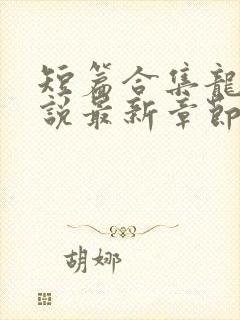 短篇合集龍
說最新章節
胡娜